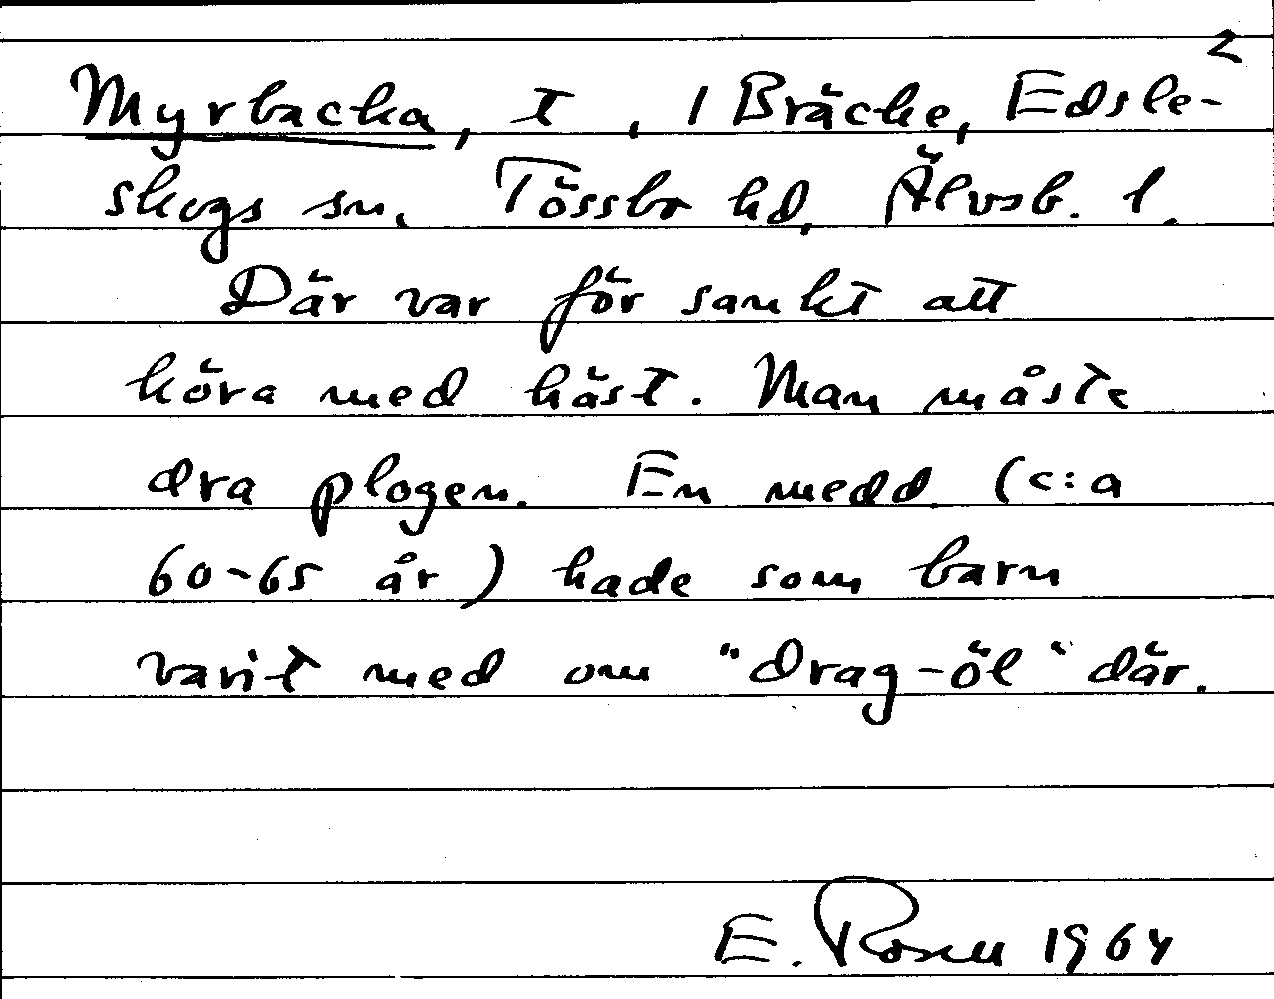 2
Myrbacka, t, 1 Bräcke, Edsle-
skogs sn, Tössbo hd, Älvsb. l.
Där var för sankt att
köra med häst. Man måste
dra plogen. En medd. (c:a
60-65 år) hade som barn
varit med om "drag-öl" där.
E. Rosell 1964